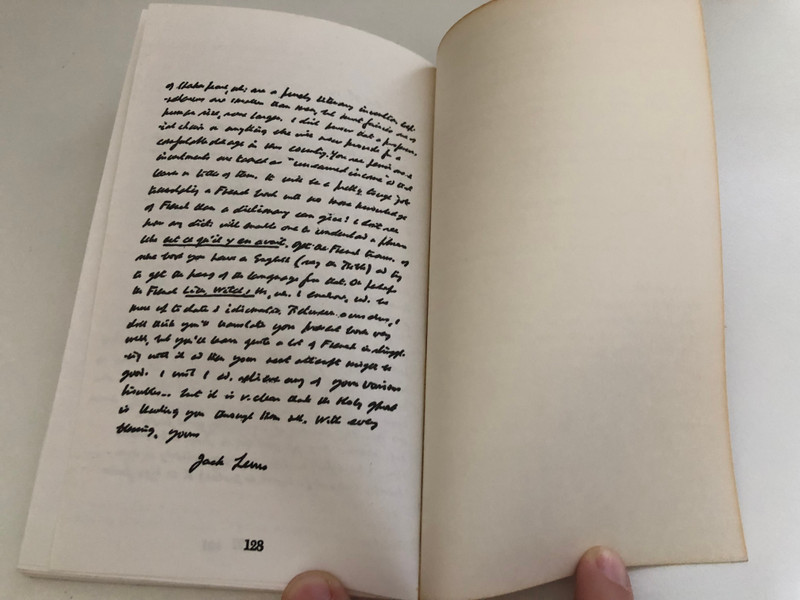 of Shakespeare, who are a purely literary invention. Left-
-overs are smaller than men, but most fairies are of
human size, some larger. I didn't know that a profess-
ional chair or anything else was now provide for a
comfortable old age in this country. You see pensions &
investments are taxed as "unearned income" so that
leaves a little of them. It will be a pretty tough job
translating a French book with no more knowledge
of French than a dictionary can give! I don't see
how any dict. will enable one to understand a phrase
like est ce qu'il y en avait. Get the French trans. of
some book you have in English (say the Bible) and try
to get the hang of the language from that. Or perhaps
the French Lion, Witch, etc, wh. I
more up to date & idiomatic
don't think you'll translate your present book very
well, but you'll learn quite a lot of French in strugg-
ling with it so then your next attempt might be
good. I wish I cd. relieve any of your various
troubles.. but it is v. clear that the Holy Ghost
is leading you through them all. With every
blessing, yours
Jack Lewis
128